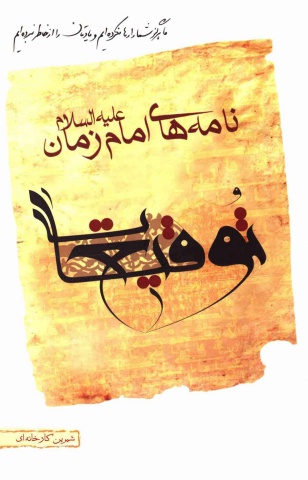 ما هرگز شما را رها نکرده‌ایم و یادتان را از خاطر نبرده‌ایم
نامه‌های امام زمان علیه السلام
و
توقیعات
شهرین کارخانه‌ای